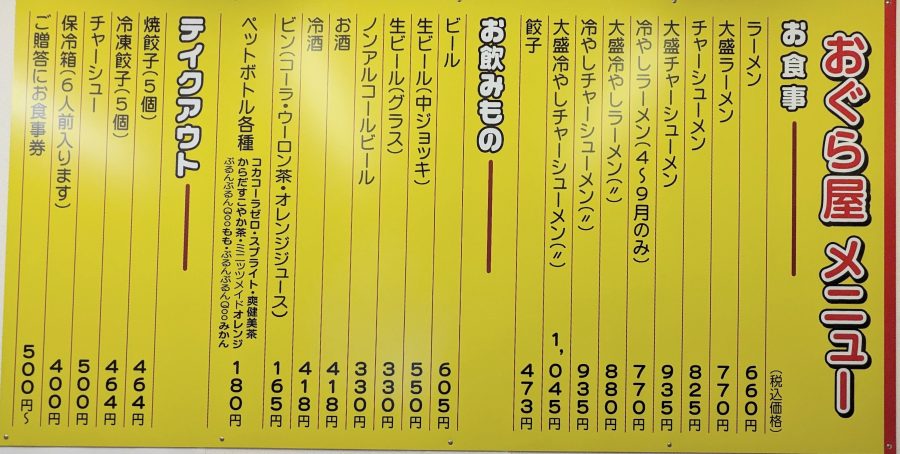 おぐら屋 メニュー
お食事
(税込価格)
ラーメン 660円
大盛ラーメン 770円
チャーシューメン 825円
大盛チャーシューメン 935円
冷やしラーメン(4〜9月のみ) 770円
大盛冷やしラーメン(〃) 880円
冷やしチャーシューメン(〃) 935円
大盛冷やしチャーシューメン(〃) 1,045円
餃子 473円
お飲みもの
ビール 605円
生ビール(中ジョッキ) 550円
生ビール(グラス) 330円
ノンアルコールビール 330円
お酒 418円
冷酒 418円
ビン(コーラ・ウーロン茶・オレンジジュース) 165円
ペットボトル各種 コカコーラゼロ・スプライト・爽健美茶
からだすこやか茶・ミニッツメイドオレンジ
ぷるんぷるんQooもも・ぷるんぷるんQooみかん 180円
テイクアウト
焼餃子(5個) 464円
冷凍餃子(5個) 464円
チャーシュー 500円
保冷箱(6人前入ります) 400円
ご贈答にお食事券 500円〜